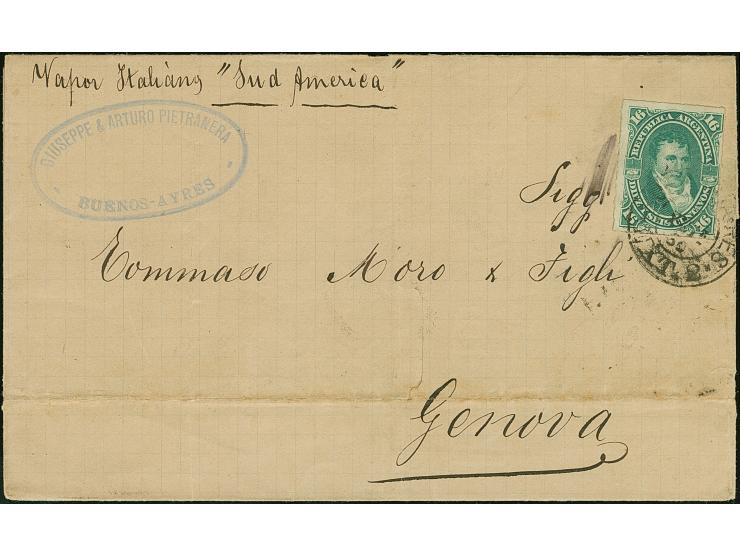 Vapor Italiano "Sud America"
GIUSEPPE & ARTURO PIETRANERA
BUENOS-AYRES
16 16
REPUBLICA ARGENTINA
DIEZ I SEIS CENTAVOS
16 16
Sigg
Tommaso Moro & Figli
Genova